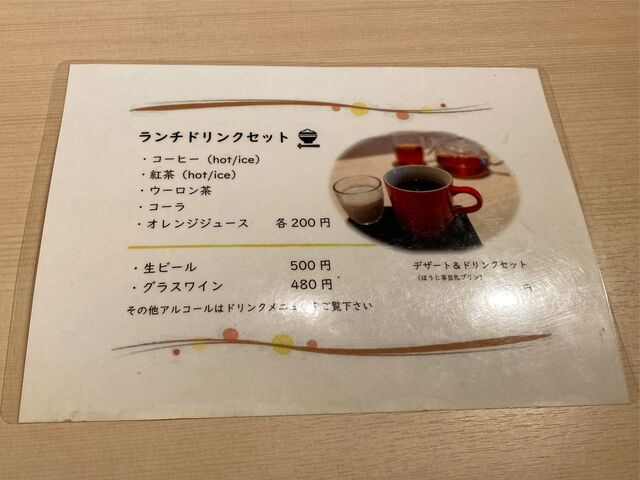 ランチドリンクセット
・コーヒー（hot/ice）
・紅茶（hot/ice）
・ウーロン茶
・コーラ
・オレンジジュース 各200円
・生ビール 500円
・グラスワイン 480円
その他アルコールはドリンクメニュー ご覧下さい
デザート＆ドリンクセット
（ほうじ茶豆乳プリン）
円